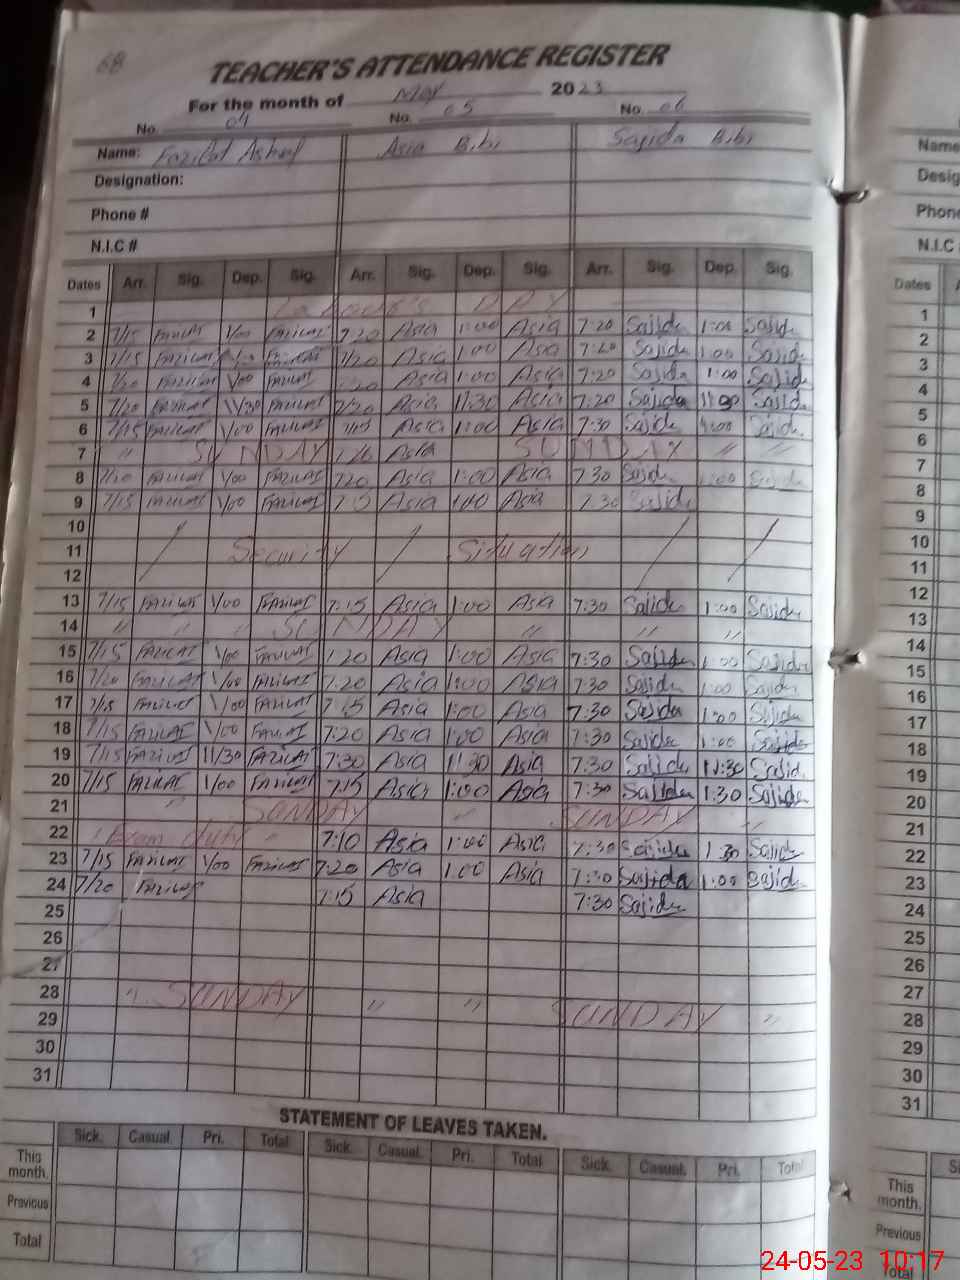 68
TEACHER'S ATTENDANCE REGISTER
For the month of May 2023
No. 04 No. 05 No. 06
Name: Fazilat Ashraf Asia Bibi Sajida Bibi
Designation:
Phone #
N.I.C #
Dates Arr. Sig. Dep. Sig. Arr. Sig. Dep. Sig. Arr. Sig. Dep. Sig.
1 DAY
2 7/15 FAZILAT 1/00 FAZILAT 7:20 Asia 1:00 Asia 7:20 Sajida 1:00 Sajida
3 7/15 FAZILAT 1/00 FAZILAT 7/20 Asia 1:00 Asia 7:20 Sajida 1:00 Sajida
4 7/20 FAZILAT 1/00 FAZILAT :20 Asia 1:00 Asia 7:20 Sajida 1:00 Sajida
5 7/20 FAZILAT 11/30 FAZILAT 7/20 Asia 11:30 Asia 7:20 Sajida 11:30 Sajida
6 7/15 FAZILAT 1/00 FAZILAT 7/15 Asia 1:00 Asia 7:30 Sajida 1:00 Sajida
7 " SUNDAY Asia SUNDAY " "
8 7/20 FAZILAT 1/00 FAZILAT 7:20 Asia 1:00 Asia 7:30 Sajida 1:00 Sajida
9 7/15 FAZILAT 1/00 FAZILAT Asia 1:00 Asia 7:30 Sajida
10
11 Security Situation
12
13 7/15 FAZILAT 1/00 FAZILAT 7:15 Asia 1:00 Asia 7:30 Sajida 1:00 Sajida
14 " " " SUNDAY " " "
15 7/15 FAZILAT 1/00 FAZILAT 7:20 Asia 1:00 Asia 7:30 Sajida 1:00 Sajida
16 7/20 FAZILAT 1/00 FAZILAT 7:20 Asia 1:00 Asia 7:30 Sajida 1:00 Sajida
17 7/15 FAZILAT 1/00 FAZILAT 7:15 Asia 1:00 Asia 7:30 Sajida 1:00 Sajida
18 7/15 FAZILAT 1/00 FAZILAT 7:20 Asia 1:00 Asia 7:30 Sajida 1:00 Sajida
19 7/15 FAZILAT 11/30 FAZILAT 7:30 Asia 11:30 Asia 7:30 Sajida 11:30 Sajida
20 7/15 FAZILAT 1/00 FAZILAT 7:15 Asia 1:00 Asia 7:30 Sajida 1:30 Sajida
21 " SUNDAY " SUNDAY "
22 Exam duty " 7:10 Asia 1:00 Asia 7:30 Sajida 1:30 Sajida
23 7/15 FAZILAT 1/00 FAZILAT 7:20 Asia 1:00 Asia 7:30 Sajida 1:00 Sajida
24 7/20 FAZILAT 7:15 Asia 7:30 Sajida
25
26
27
28 " SUNDAY " " SUNDAY "
29
30
31
STATEMENT OF LEAVES TAKEN.
Sick. Casual. Pri. Total Sick. Casual. Pri. Total Sick. Casual. Pri. Total
This month.
Previous
Total
Name
Desig
Phone
N.I.C
Dates
1
2
3
4
5
6
7
8
9
10
11
12
13
14
15
16
17
18
19
20
21
22
23
24
25
26
27
28
29
30
31
This month.
Previous
Total
24-05-23 10:17